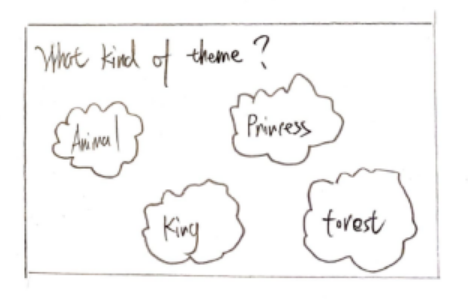 What kind of theme?
Animal
Princess
King
forest